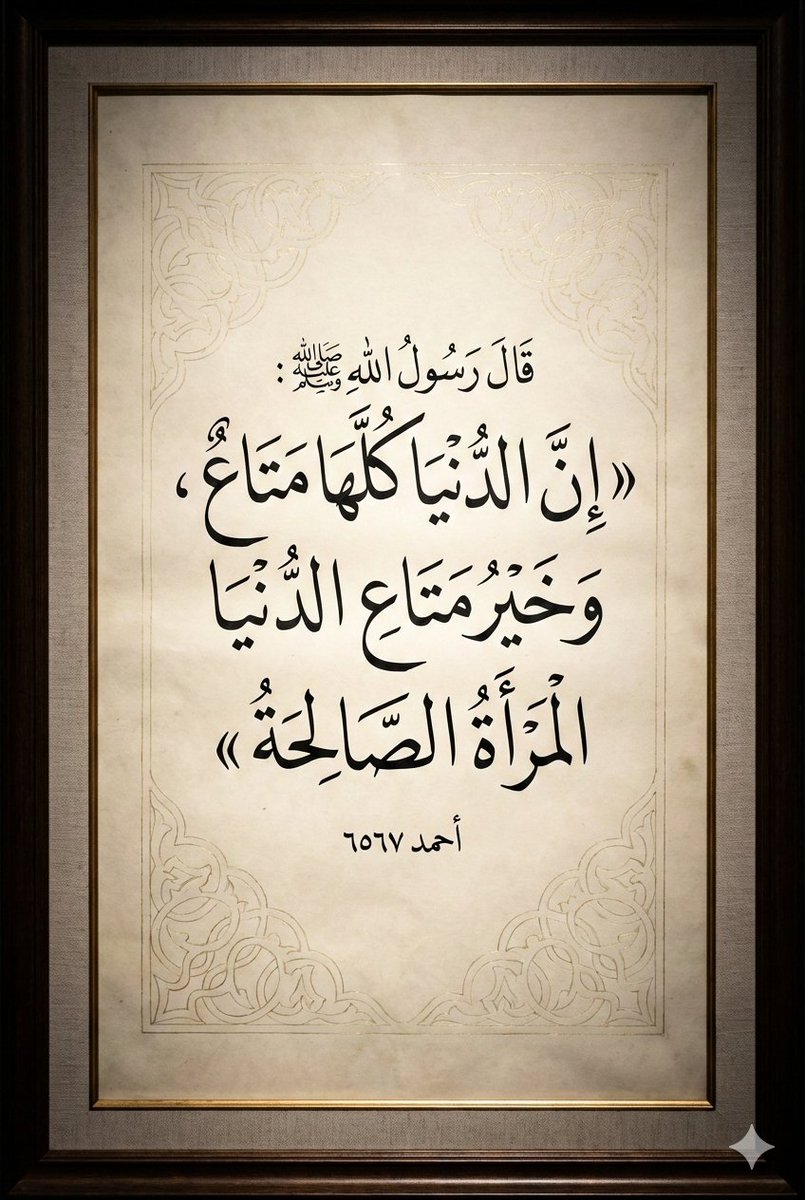 قَالَ رَسُولُ اللهِ ﷺ :
«إِنَّ الدُّنْيَا كُلَّهَا مَتَاعٌ ،
وَخَيْرُ مَتَاعِ الدُّنْيَا
الْمَرْأَةُ الصَّالِحَةُ»
أحمد ٦٥٦٧